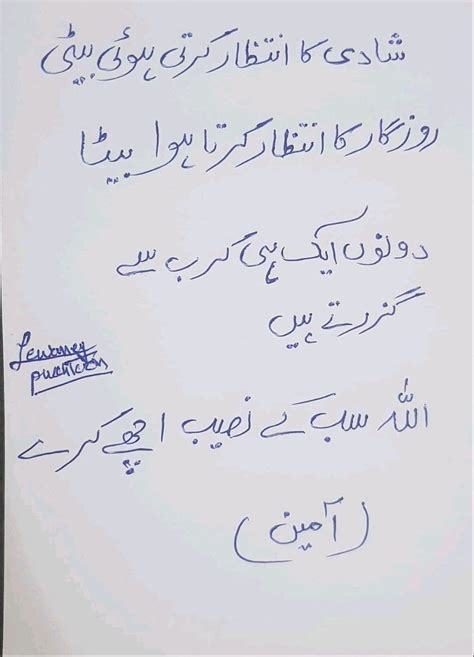 شادی کا انتظار کرتی ہوئی بیٹی
روزگار کا انتظار کرتا ہوا بیٹا
دونوں ایک ہی کرب سے
گزرتے ہیں
اللہ سب کے نصیب اچھے کرے
(آمین)